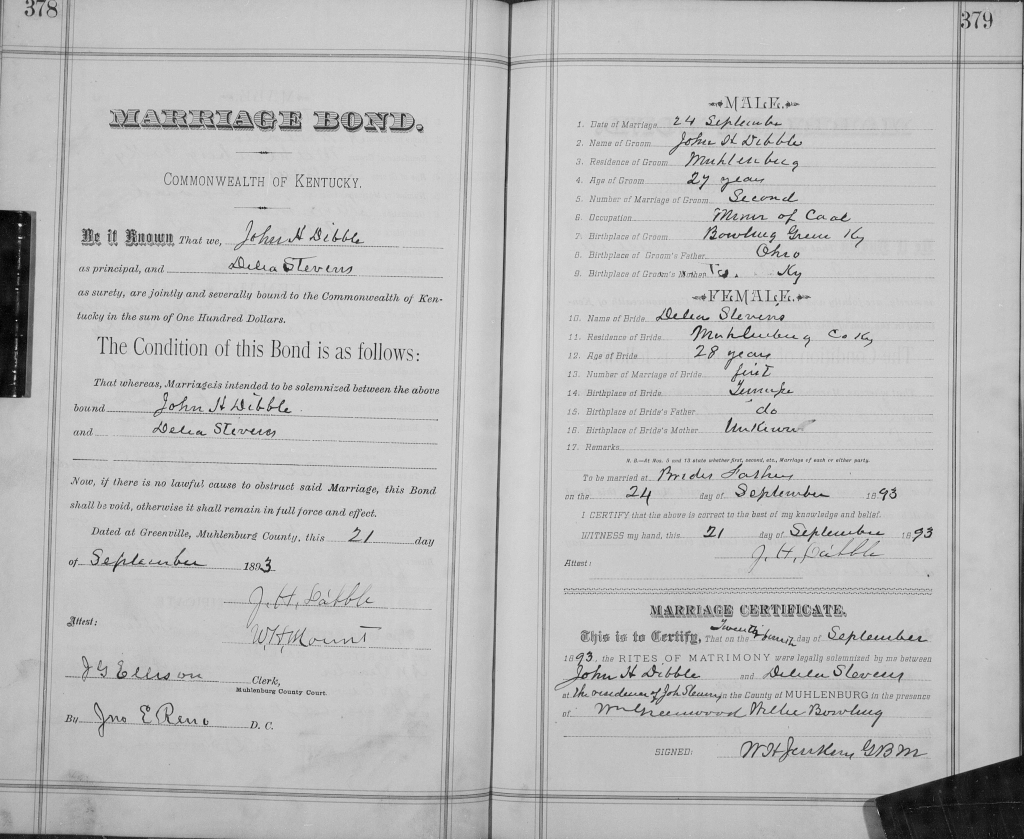 378
MARRIAGE BOND.
COMMONWEALTH OF KENTUCKY.
Be it Known That we, John H Dibble
as principal, and Delia Stevens
as surety, are jointly and severally bound to the Commonwealth of Ken-
tucky in the sum of One Hundred Dollars.
The Condition of this Bond is as follows:
That whereas, Marriage is intended to be solemnized between the above
bound John H Dibble
and Delia Stevens
Now, if there is no lawful cause to obstruct said Marriage, this Bond
shall be void, otherwise it shall remain in full force and effect.
Dated at Greenville, Muhlenburg County, this 21 day
of September 1893
J. H. Dibble
Attest:
W. H. Mount
J G Ellison Clerk,
Muhlenburg County Court.
By Jno E. Reno D. C.
379
MALE.
1. Date of Marriage 24 September
2. Name of Groom John H Dibble
3. Residence of Groom Muhlenburg
4. Age of Groom 27 years
5. Number of Marriage of Groom Second
6. Occupation Miner of Coal
7. Birthplace of Groom Bowling Green Ky
8. Birthplace of Groom's Father Ohio
9. Birthplace of Groom's Mother Ky
FEMALE.
10. Name of Bride Delia Stevens
11. Residence of Bride Muhlenburg Co Ky
12. Age of Bride 28 years
13. Number of Marriage of Bride first
14. Birthplace of Bride
15. Birthplace of Bride's Father do
16. Birthplace of Bride's Mother Unknown
17. Remarks
N. B.—At Nos. 5 and 13 state whether first, second, etc., Marriage of each or either party.
To be married at Brides Fathers
on the 24 day of September 1893
I CERTIFY that the above is correct to the best of my knowledge and belief.
WITNESS my hand, this 21 day of September 1893
J. H. Dibble
Attest:
MARRIAGE CERTIFICATE.
This is to Certify, That on the Twenty fourth day of September
1893, the RITES OF MATRIMONY were legally solemnized by me between
John H Dibble and Delila Stevens
at the residence of in the County of MUHLENBURG in the presence
of Wm Greenwood Willie Bowling
SIGNED: W H Jenkins G B M